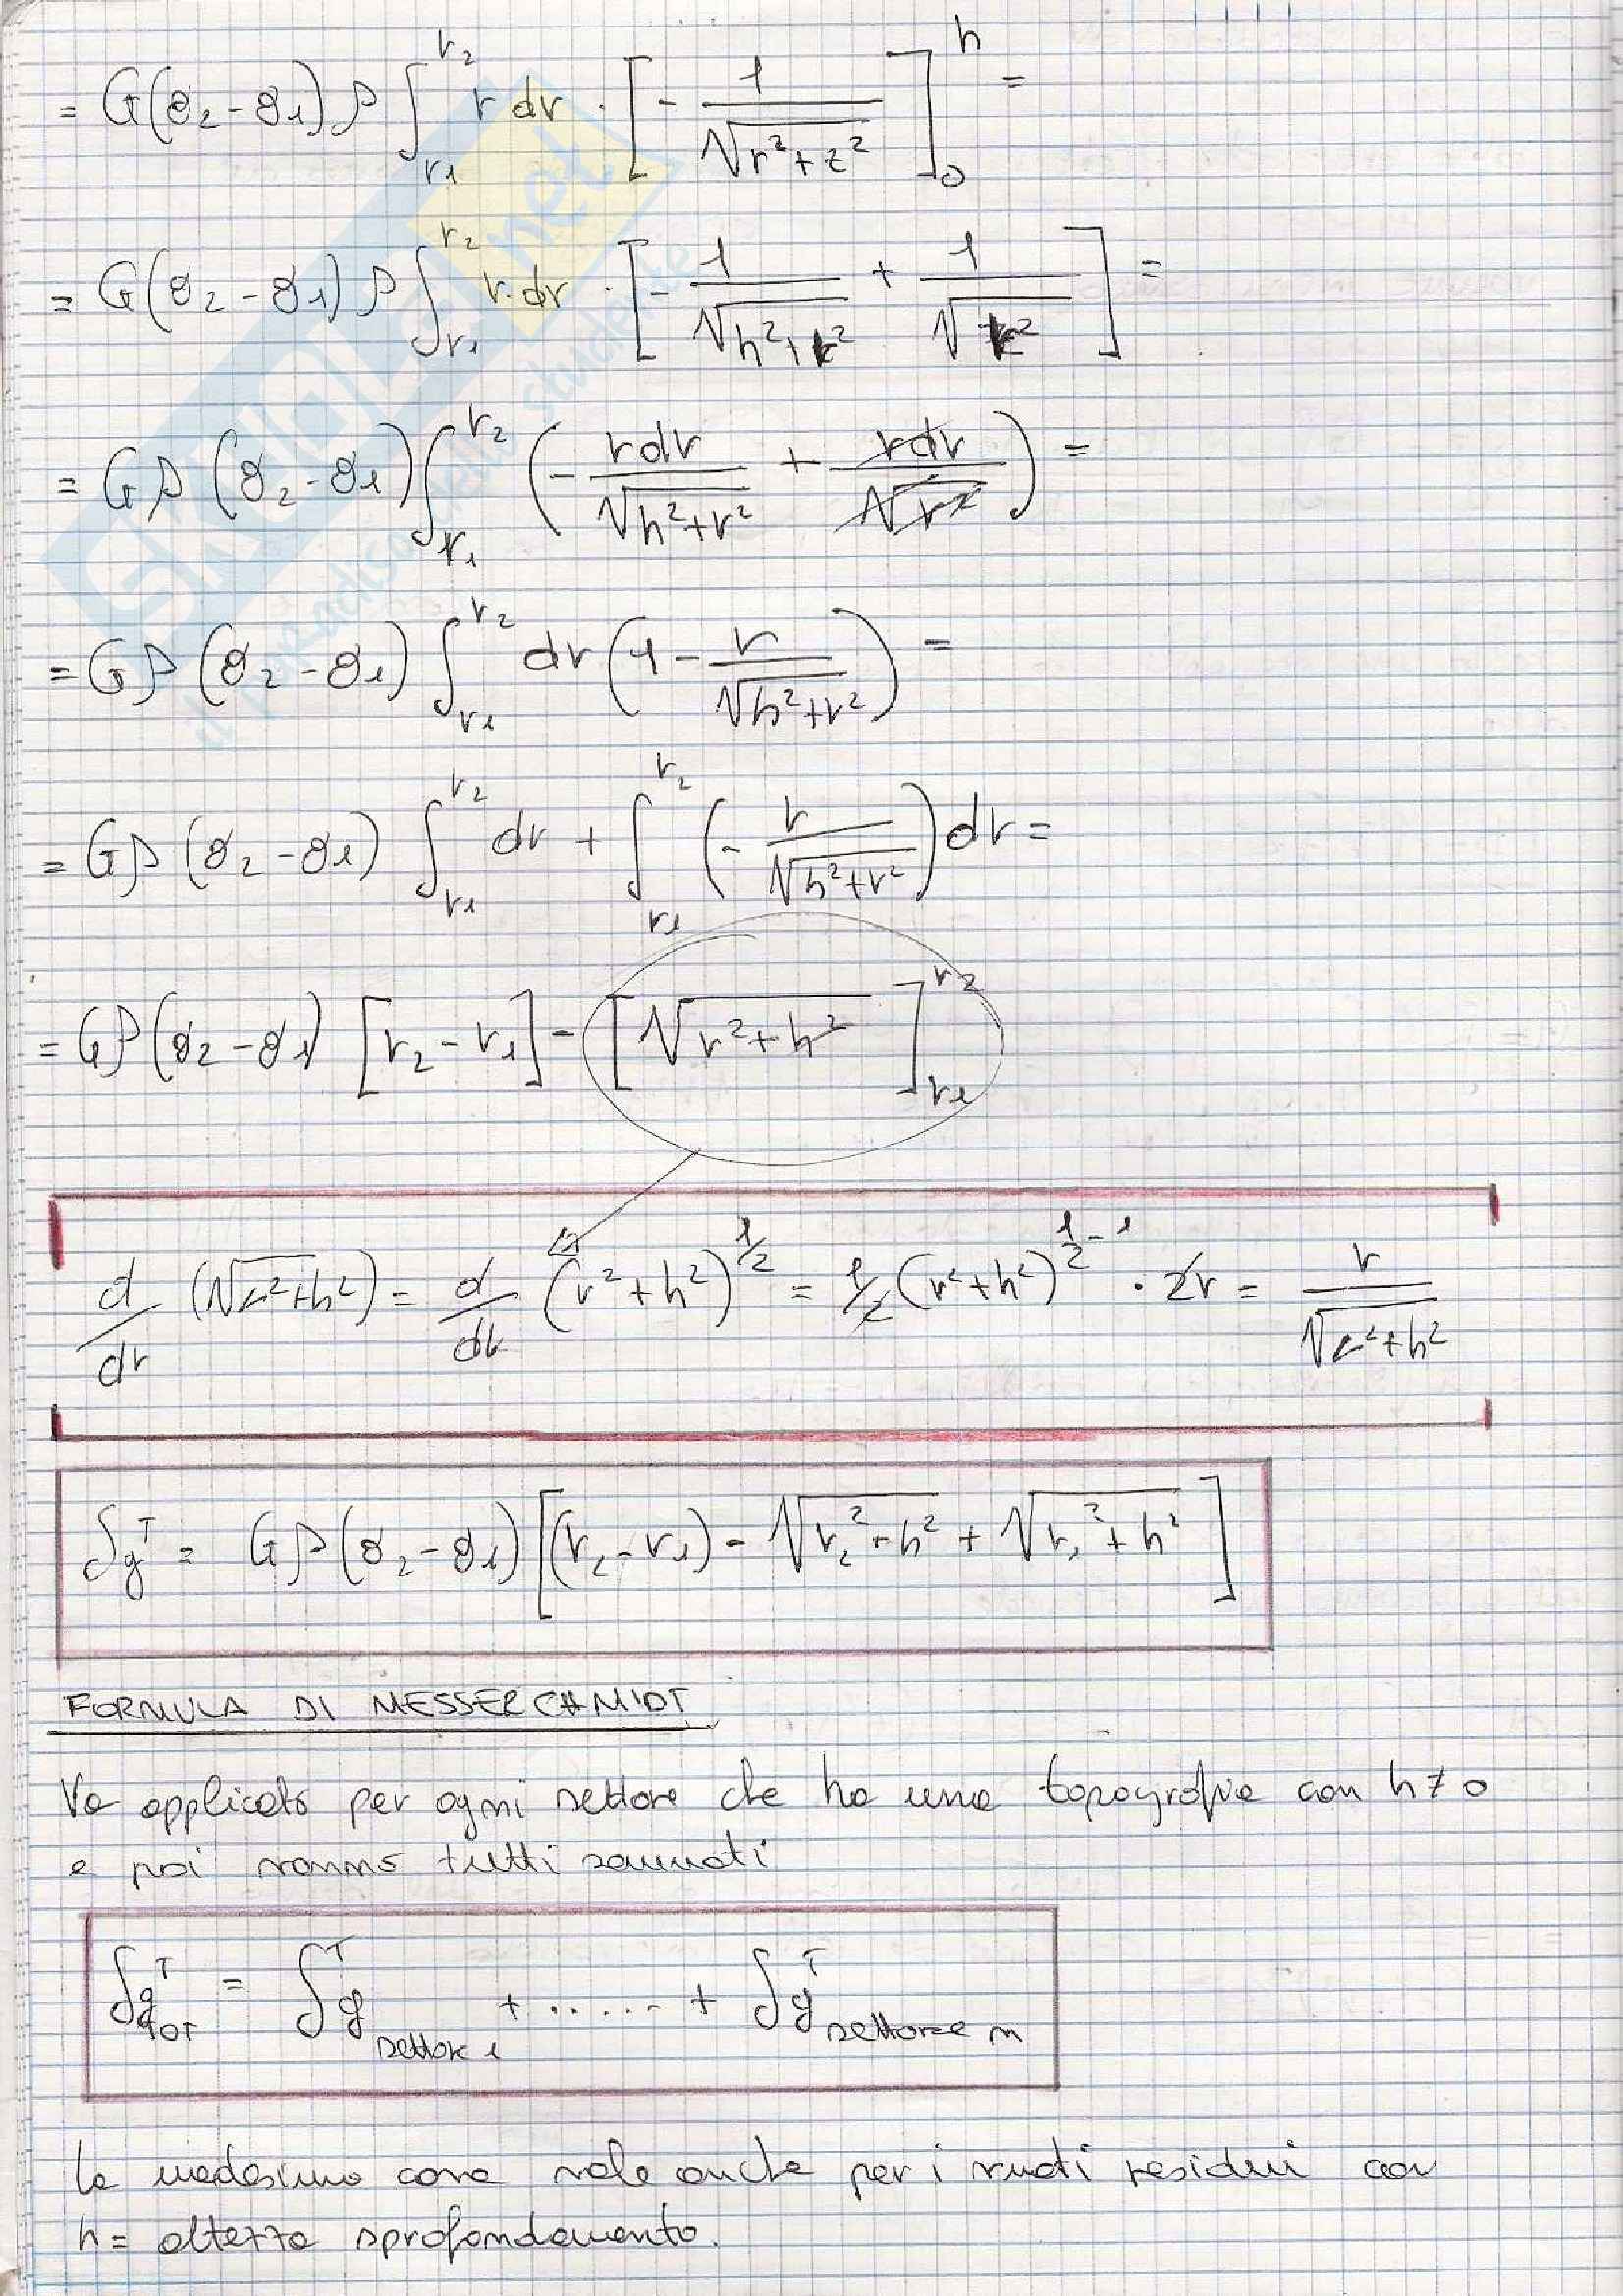 = G(θ₂-θ₁)ρ ∫_{r₁}^{r₂} r dr · [-1/√(r²+z²)]_0^h =
= G(θ₂-θ₁)ρ ∫_{r₁}^{r₂} r·dr · [-1/√(h²+r²) + 1/√(r²)] =
= Gρ(θ₂-θ₁) ∫_{r₁}^{r₂} (- rdr/√(h²+r²) + rdr/√(r²)) =
= Gρ(θ₂-θ₁) ∫_{r₁}^{r₂} dr (1 - r/√(h²+r²)) =
= Gρ(θ₂-θ₁) ∫_{r₁}^{r₂} dr + ∫_{r₁}^{r₂} (- r/√(h²+r²)) dr =
= Gρ(θ₂-θ₁) [r₂-r₁] - [√(r²+h²)]_{r₁}^{r₂}
d/dr (√(r²+h²)) = d/dr (r²+h²)^{1/2} = 1/2 (r²+h²)^{1/2-1} · 2r = r/√(r²+h²)
δg^T = Gρ(θ₂-θ₁)[(r₂-r₁) - √(r₂²+h²) + √(r₁²+h²)]
FORMULA DI MESSERCHMIDT
Va applicato per ogni settore che ha una topografia con h≠0
e poi vanno tutti sommati
δg^T_{TOT} = δg^T_{settore 1} + ...... + δg^T_{settore n}
La medesima cosa vale anche per i vuoti residui con
h = altezza sprofondamento.